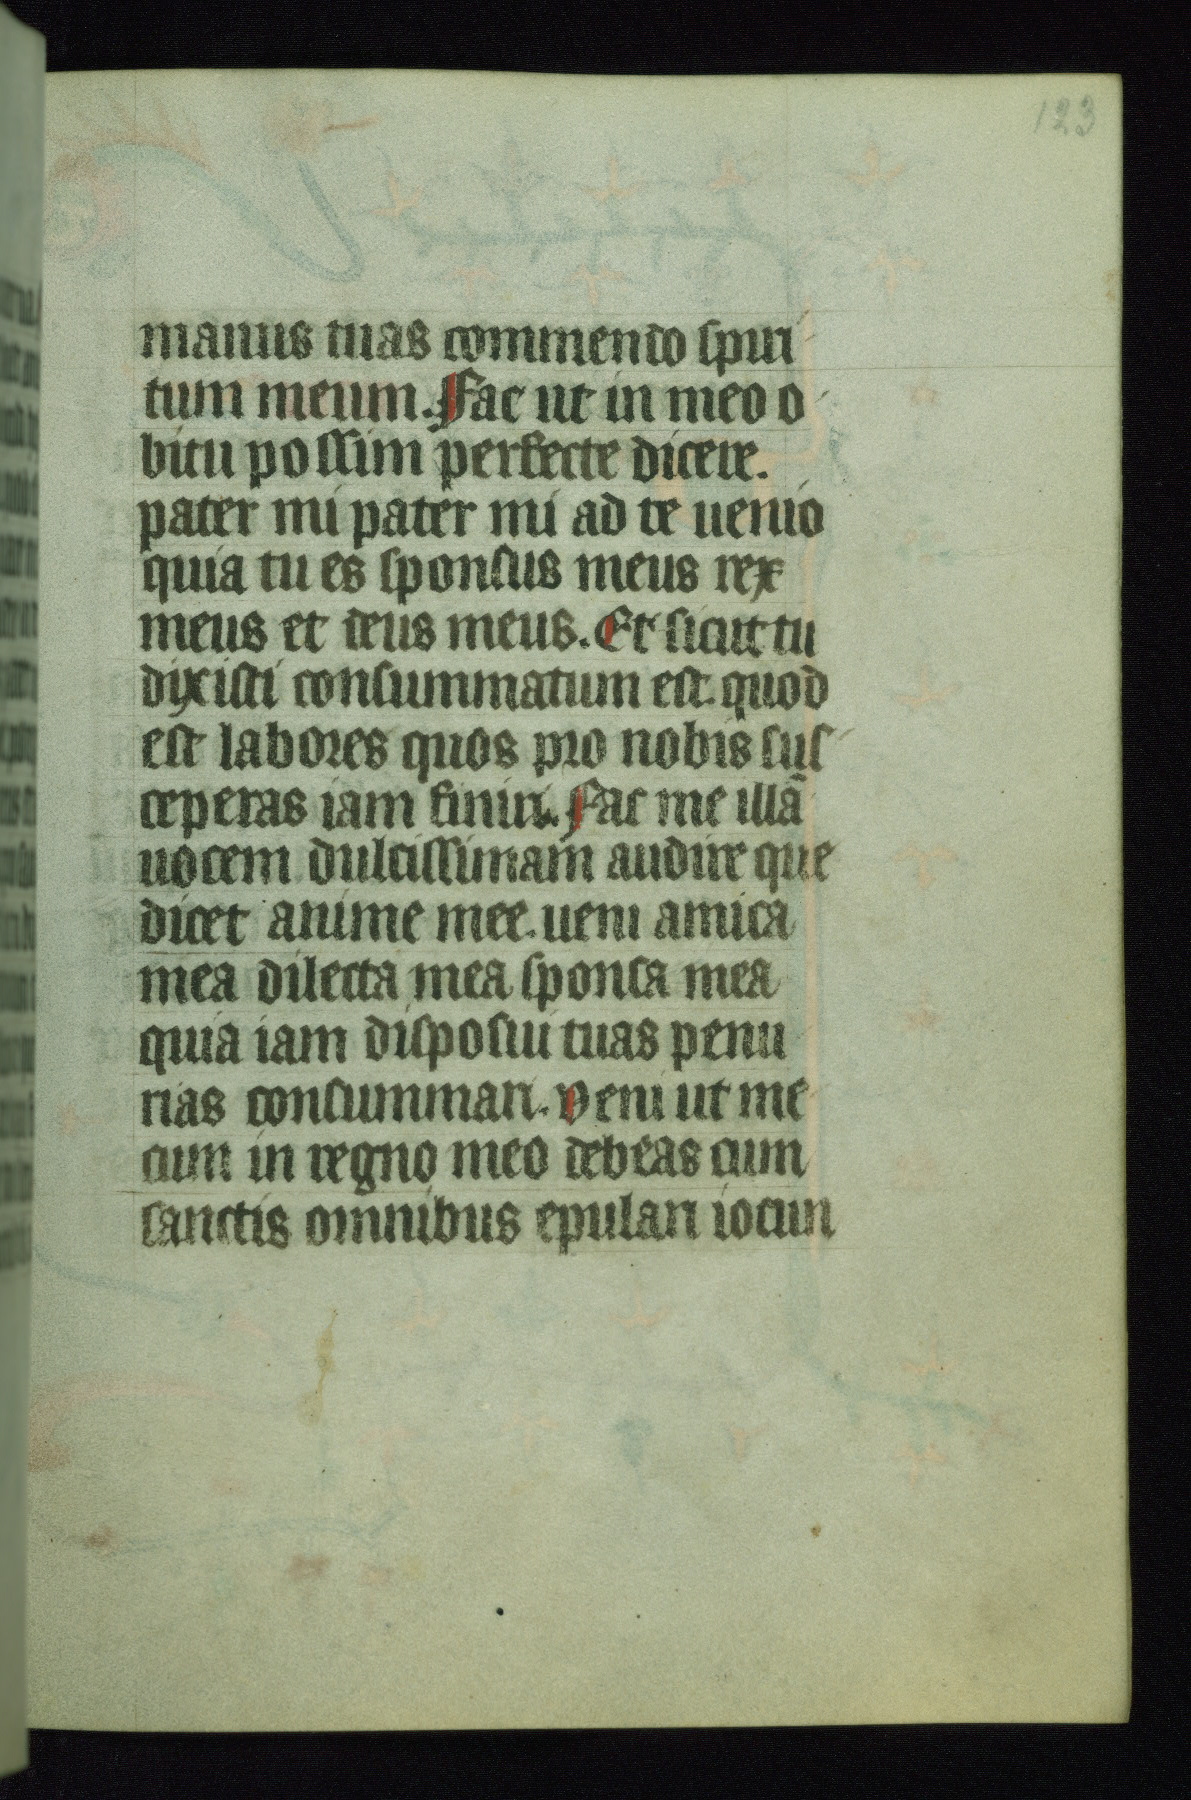 123
manus tuas commendo spiri
tum meum. Fac ut in meo o
bitu possim perfecte dicere.
pater mi pater mi ad te uenio
quia tu es sponsus meus rex
meus et deus meus. Et sicut tu
dixisti consummatum est. quod
est labores quos pro nobis sus
ceperas iam finiri. Fac me illā
uocem dulcissimam audire que
dicet anime mee. ueni amica
mea dilecta mea sponsa mea
quia iam disposui tuas penu
rias consummari. Veni ut me
cum in regno meo debeas cum
sanctis omnibus epulari iocun